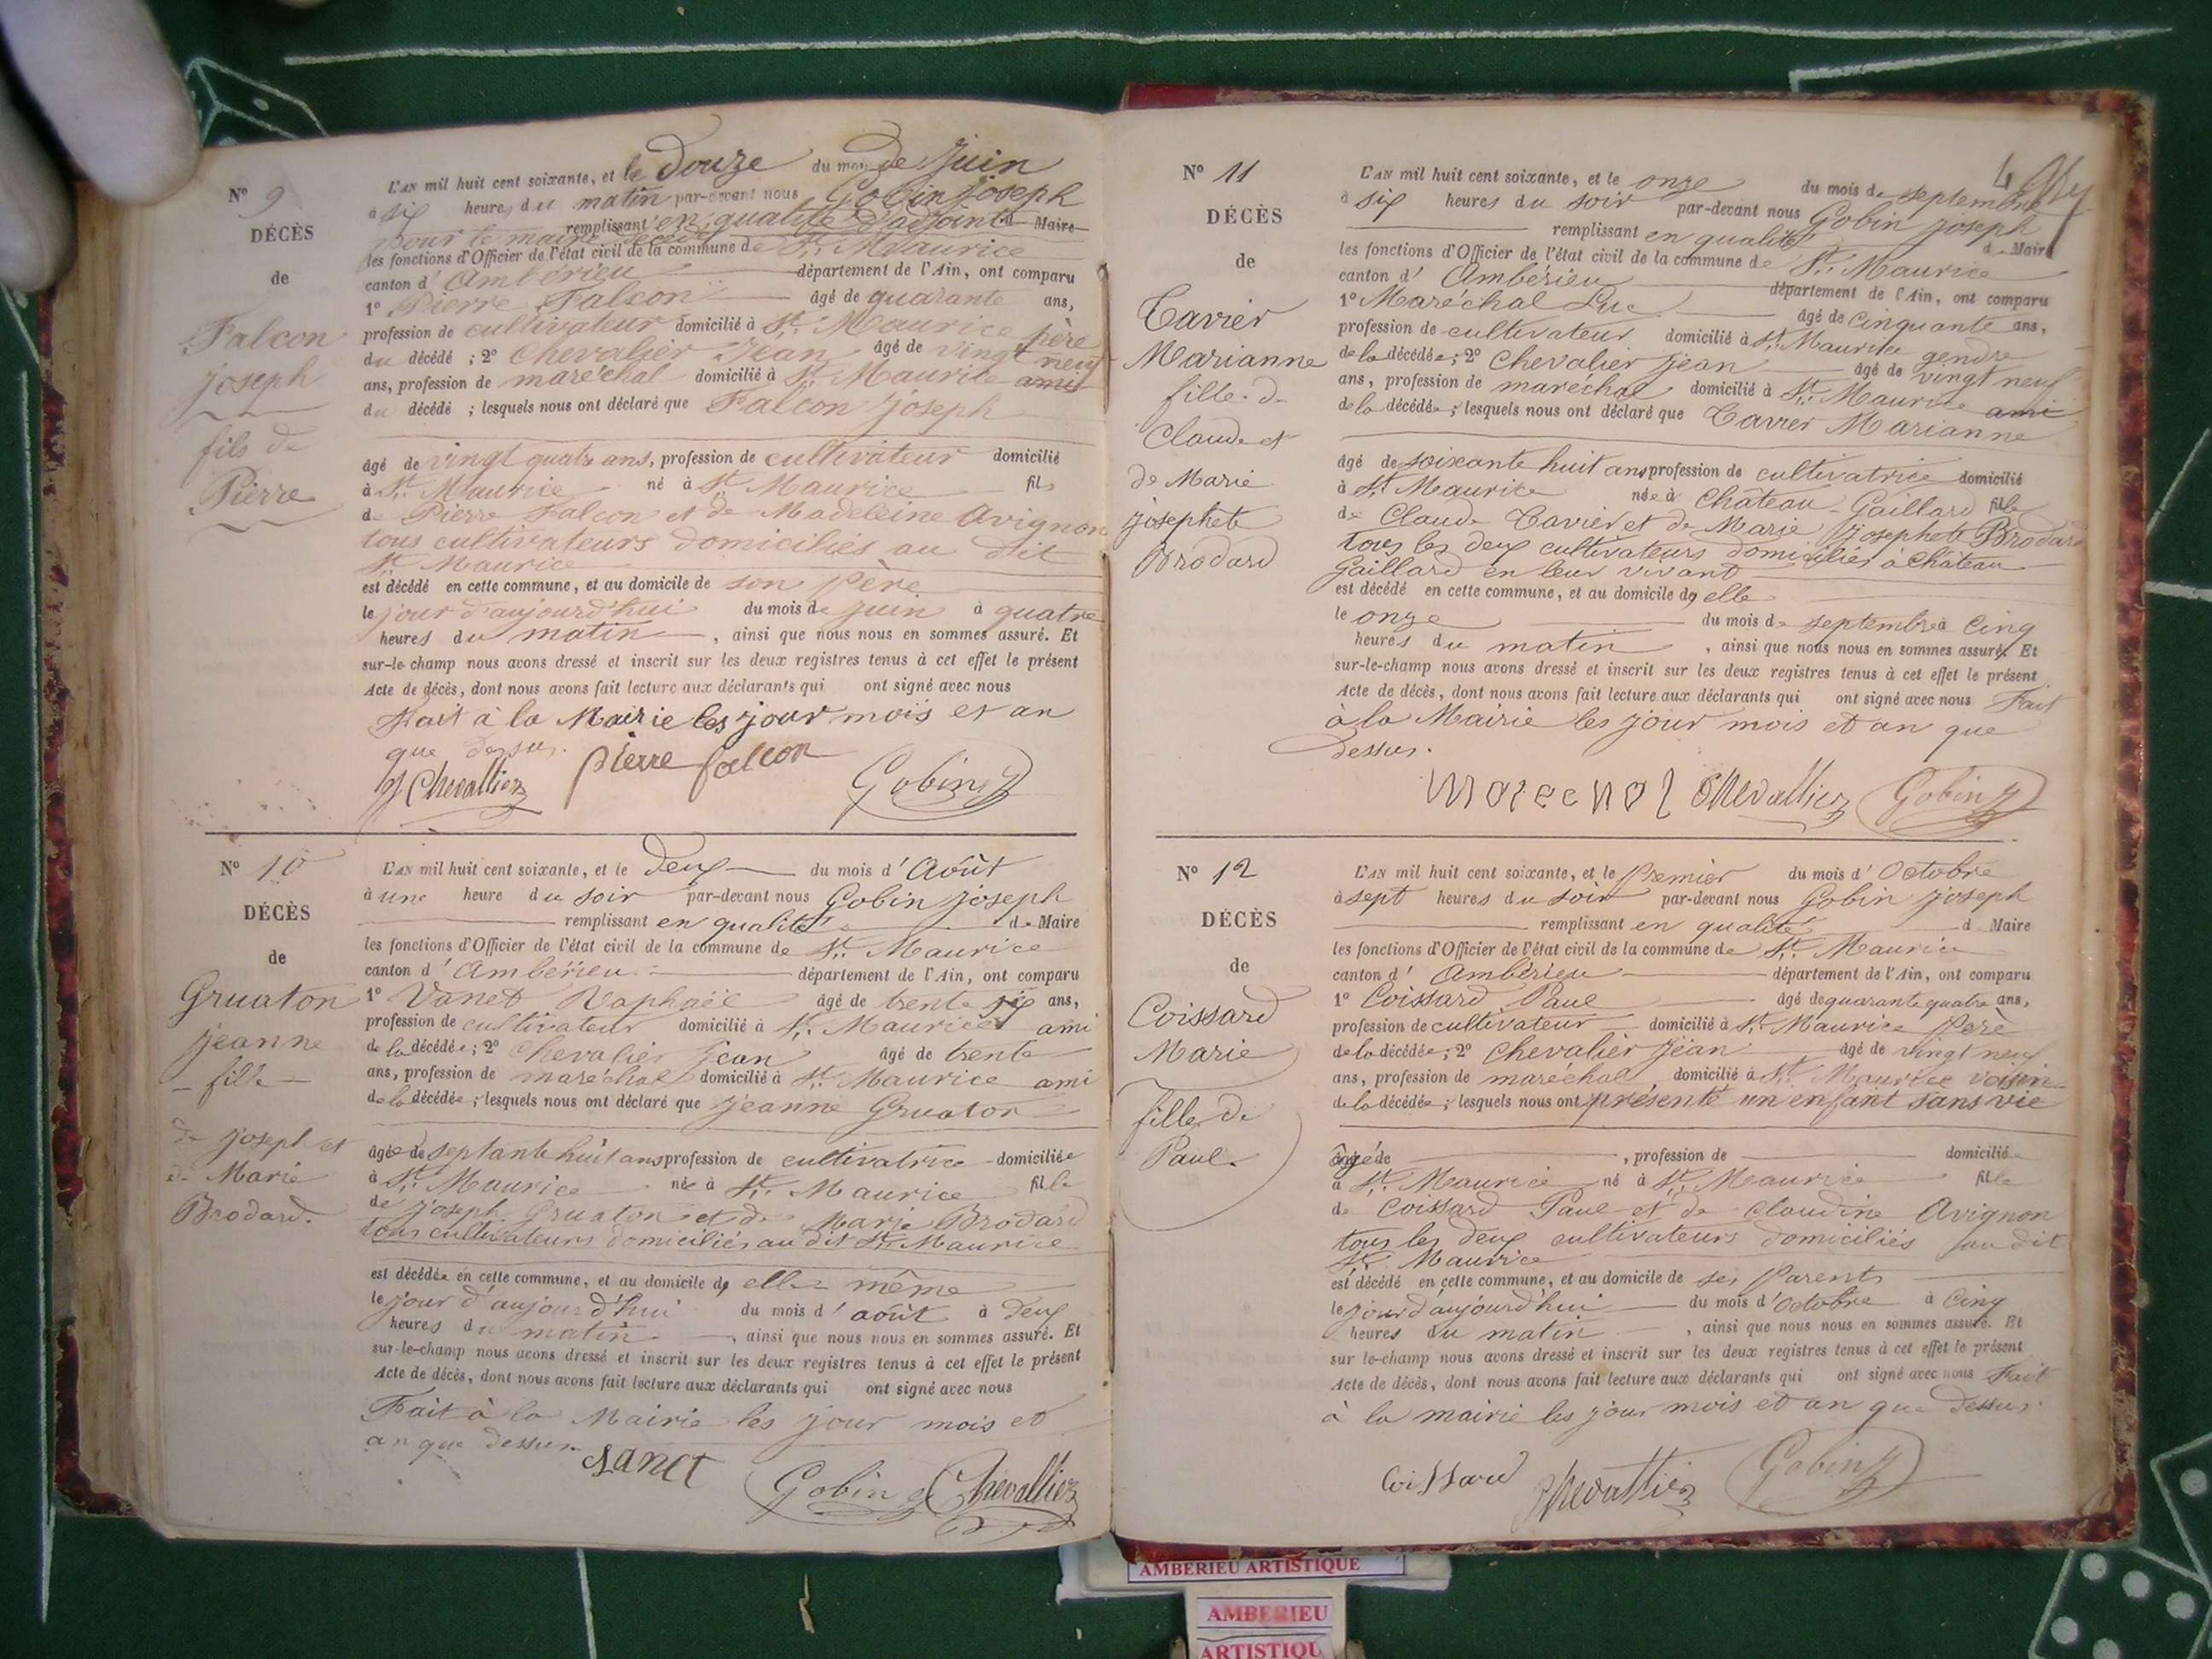 Nº 9
DÉCÈS
de
Falcon
joseph
fils de
Pierre
L'AN mil huit cent soixante, et le douze du mois de Juin
à six heures du matin par-devant nous Gobin joseph
remplissant en qualité d'adjoint d Maire
pour le maire
les fonctions d'Officier de l'état civil de la commune de St. Maurice
canton d' Ambérieu département de l'Ain, ont comparu
1º Pierre Falcon âgé de quarante ans,
profession de cultivateur domicilié à St. Maurice père
du décédé ; 2º Chevalier Jean âgé de vingt neuf
ans, profession de maréchal domicilié à St. Maurice ami
du décédé ; lesquels nous ont déclaré que Falcon joseph
âgé de vingt quatre ans, profession de cultivateur domicilié
à St. Maurice né à St. Maurice fils
de Pierre Falcon et de Madeleine Avignon
tous cultivateurs domiciliés au dit
St. Maurice
est décédé en cette commune, et au domicile de son père
le jour d'aujourd'hui du mois de juin à quatre
heures du matin , ainsi que nous nous en sommes assuré. Et
sur-le-champ nous avons dressé et inscrit sur les deux registres tenus à cet effet le présent
Acte de décès, dont nous avons fait lecture aux déclarants qui ont signé avec nous
Fait à la Mairie les jour mois et an
que dessus.
J Chevallier pierre falcon Gobin J
Nº 10
DÉCÈS
de
Gruaton
jeanne
fille
de joseph et
de Marie
Brodard.
L'AN mil huit cent soixante, et le deux du mois d' Août
à une heure du soir par-devant nous Gobin joseph
remplissant en qualité de Maire
les fonctions d'Officier de l'état civil de la commune de St. Maurice
canton d' Ambérieu département de l'Ain, ont comparu
1º Vanet Raphaël âgé de trente six ans,
profession de cultivateur domicilié à St. Maurice ami
de la décédée ; 2º Chevalier jean âgé de trente
ans, profession de maréchal domicilié à St. Maurice ami
de la décédée ; lesquels nous ont déclaré que jeanne Gruaton
âgée de septante huit ans profession de cultivatrice domiciliée
à St. Maurice née à St. Maurice fille
de joseph Gruaton et de Marie Brodard
tous cultivateurs domiciliés au dit St. Maurice
est décédée en cette commune, et au domicile d' elle même
le jour d'aujourd'hui du mois d' août à deux
heures du matin , ainsi que nous nous en sommes assuré. Et
sur-le-champ nous avons dressé et inscrit sur les deux registres tenus à cet effet le présent
Acte de décès, dont nous avons fait lecture aux déclarants qui ont signé avec nous
Fait à la Mairie les jour mois et
an que dessus.
Gobin J Chevallier
Nº 11
DÉCÈS
de
Cavier
Marianne
fille de
Claude et
de Marie
josephete
Brodard
L'AN mil huit cent soixante, et le onze du mois de septembre
à six heures du soir par-devant nous Gobin joseph
remplissant en qualité de Maire
les fonctions d'Officier de l'état civil de la commune de St. Maurice
canton d' Ambérieu département de l'Ain, ont comparu
1º Maréchal Luc âgé de cinquante ans,
profession de cultivateur domicilié à St. Maurice gendre
de la décédée ; 2º Chevalier jean âgé de vingt neuf
ans, profession de maréchal domicilié à St. Maurice ami
de la décédée ; lesquels nous ont déclaré que Cavier Marianne
âgé de soixante huit ans profession de cultivatrice domicilié
à St. Maurice née à Château-Gaillard fille
de Claude Cavier et de Marie josephete Brodard
tous les deux cultivateurs domiciliés à Château
Gaillard en leur vivant
est décédé en cette commune, et au domicile d'elle
le onze du mois de septembre à cinq
heures du matin , ainsi que nous nous en sommes assuré. Et
sur-le-champ nous avons dressé et inscrit sur les deux registres tenus à cet effet le présent
Acte de décès, dont nous avons fait lecture aux déclarants qui ont signé avec nous Fait
à la Mairie les jour mois et an que
dessus.
Chevallier Gobin J
Nº 12
DÉCÈS
de
Coissard
Marie
fille de
Paul.
L'AN mil huit cent soixante, et le Premier du mois d' Octobre
à sept heures du soir par-devant nous Gobin joseph
remplissant en qualité d Maire
les fonctions d'Officier de l'état civil de la commune de St. Maurice
canton d' Ambérieu département de l'Ain, ont comparu
1º Coissard Paul âgé de quarante quatre ans,
profession de cultivateur domicilié à St. Maurice Père
de la décédée ; 2º Chevalier Jean âgé de vingt neuf
ans, profession de maréchal domicilié à St. Maurice voisin
de la décédée ; lesquels nous ont présenté un enfant sans vie
âgé de , profession de domicilié
à St. Maurice né à St. Maurice fille
de Coissard Paul et de Claudine Avignon
tous les deux cultivateurs domiciliés au dit
St. Maurice
est décédé en cette commune, et au domicile de ses Parents
le jour d'aujourd'hui du mois d' Octobre à Cinq
heures du matin , ainsi que nous nous en sommes assuré. Et
sur le-champ nous avons dressé et inscrit sur les deux registres tenus à cet effet le présent
Acte de décès, dont nous avons fait lecture aux déclarants qui ont signé avec nous Fait
à la mairie les jour mois et an que dessus
Coissard Chevallier Gobin J
AMBERIEU ARTISTIQUE
AMBERIEU
ARTISTIQU